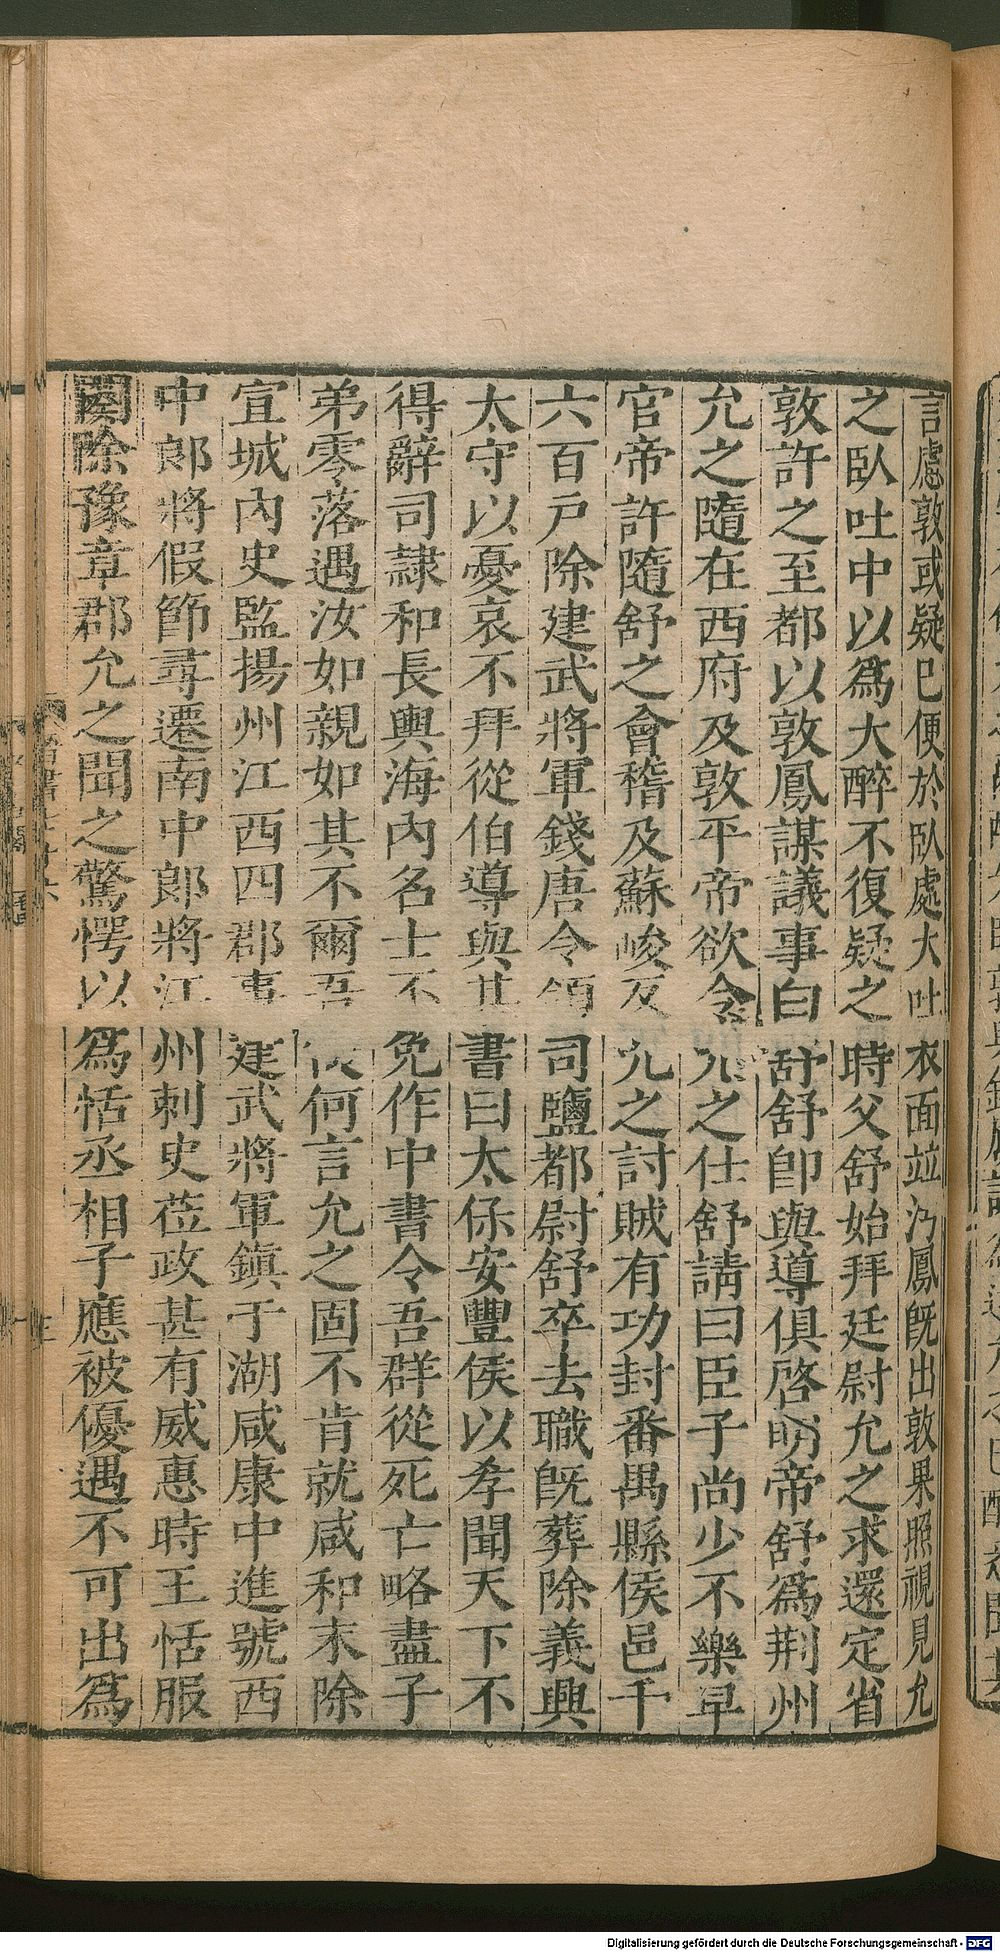 言慮敦或疑巳便於臥處大吐衣面並汚鳳旣出敦果照視見允
之臥吐中以爲大醉不復疑之時父舒始拜廷尉允之求還定省
敦許之至都以敦鳳謀議事白舒舒卽與導俱啓明帝舒爲荆州
允之隨在西府及敦平帝欲令允之仕舒請曰臣子尚少不樂早
官帝許隨舒之會稽及蘇峻反允之討賊有功封番禺縣侯邑千
六百戸除建武將軍錢唐令領司鹽都尉舒卒去職旣葬除義興
太守以憂哀不拜從伯導與其書曰太保安豐侯以孝聞天下不
得辭司隷和長輿海內名士不免作中書令吾群從死亡略盡子
弟零落遇汝如親如其不爾吾復何言允之固不肯就咸和末除
宣城內史監揚州江西四郡事建武將軍鎭于湖咸康中進號西
中郎將假節尋遷南中郎將江州刺史莅政甚有威惠時王恬服
闋除豫章郡允之聞之驚愕以爲恬丞相子應被優遇不可出爲
Digitalisierung gefördert durch die Deutsche Forschungsgemeinschaft - DFG